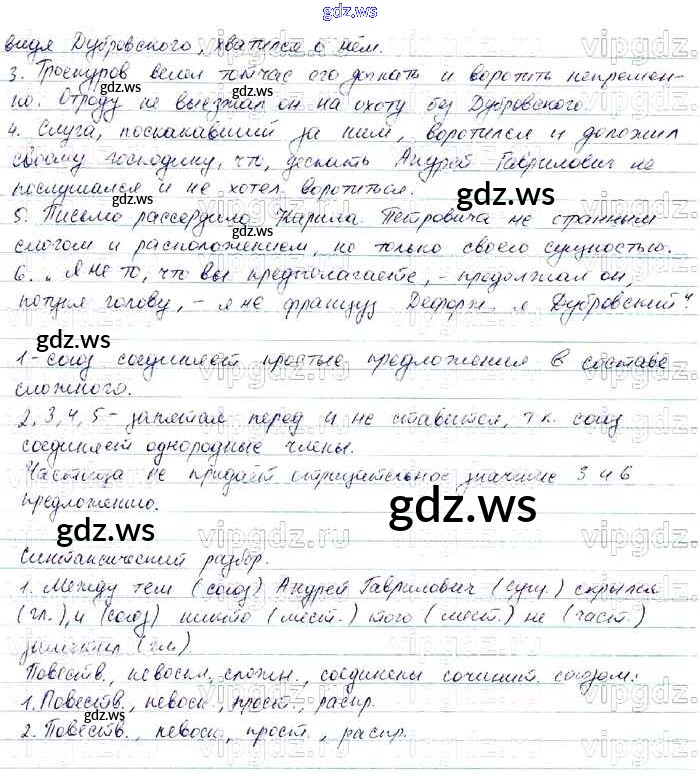 gdz.ws
видя Дубровского, хватился о нём.
3. Троекуров велел тотчас его догнать и воротить непремен-
но. Отроду не выезжал он на охоту без Дубровского.
4. Слуга, поскакавший за ним, воротился и доложил
своему господину, что, дескать Андрей Гаврилович не
послушался и не хотел воротиться.
5. Письмо рассердило Кирила Петровича не странным
слогом и расположением, но только своею сущностью.
6. „Я не то, что вы предполагаете, - продолжал он,
потупя голову, - я не француз Дефорж, я Дубровский"
1 - союз соединяет простые предложения в составе
сложного.
2, 3, 4, 5 - запятая перед и не ставится, т.к. союз
соединяет однородные члены.
Частица не придаёт отрицательное значение 3 4 6
предложению.
Синтаксический разбор.
1. Между тем (союз) Андрей Гаврилович (сущ.) скрылся
(гл.), и (союз) никто (мест.) того (мест.) не (част.)
заметил (гл.)
Повеств., невоскл, сложн., соединены сочинит. союзом:
1. Повеств., невоск., прост., распр.
2. Повеств., невоск, прост., распр.